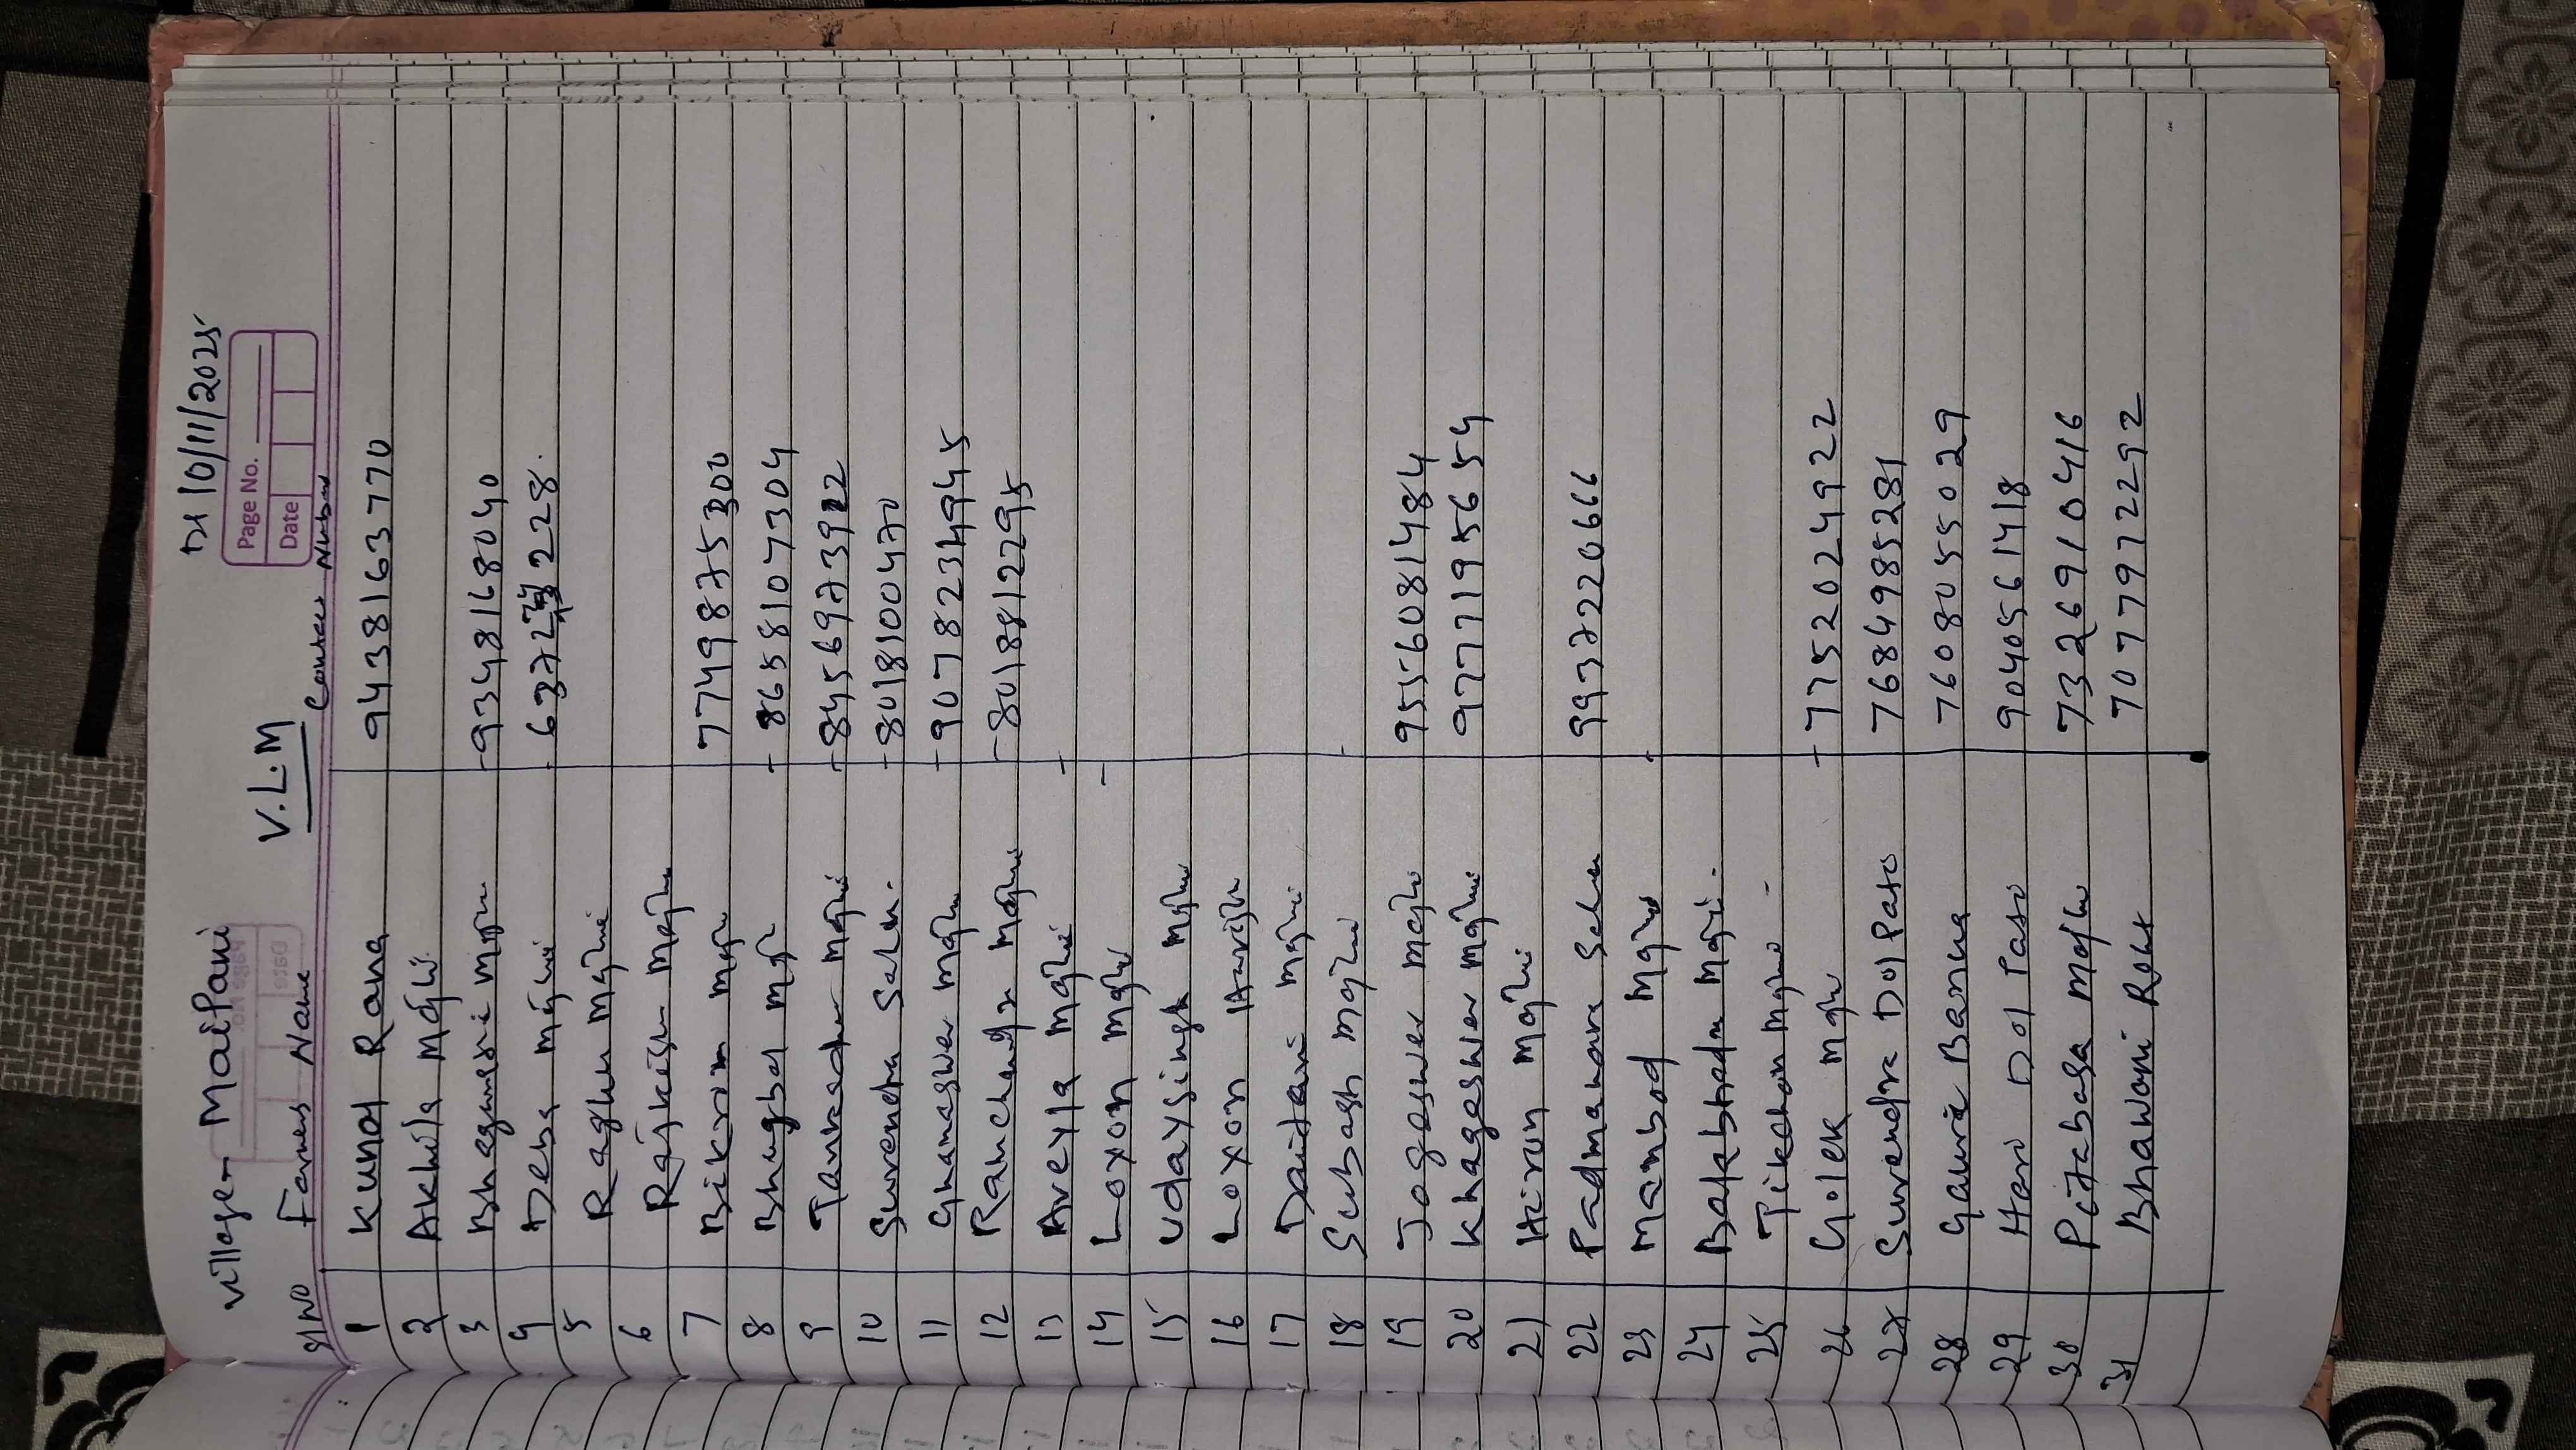 Village- Maipani Dt 10/11/2025
Page No.
Date
V.L.M
Sl No Farmers Name Contact Number
1 Kunal Rana 9438163770
2 Akhila Majhi
3 Majhi - 9348168040
4 Deba Majhi - 2228.
5 Raghu Majhi
6 Rajkishr Majhi
7 Bikrom Majhi 7749875300
8 Majhi - 8658107304
9 Majhi - 8456973922
10 Surendra Sahu. - 8018100470
11 Ghanaswer Majhi - 9078234945
12 Ramchandra Majhi - 8018812295
13 Majhi -
14 Loxon Majhi -
15 Udaysingh Majhi
16 Loxon Harijn
17 Daitari Majhi
18 Subash Majhi
19 Jogeswer Majhi 9556081484
20 Khageswer Majhi 9777195654
21 Hirun Majhi
22 Padmanav Sahu 9937220666
23 Manbod Majhi
24 Majhi.
25 Tikechan Majhi -
26 Golek Majhi - 7752024922
27 Surendra Dol Pati 7684985281
28 Gaurie Barua 7608055029
29 Hari Dol Pati 9040561418
30 Pitabasa Majhi 7326910416
31 Bhawani Rout 7077972292